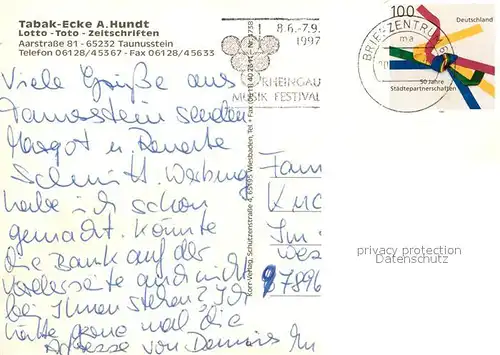 Tabak-Ecke A. Hundt
Lotto - Toto - Zeitschriften
Aarstraße 81 - 65232 Taunusstein
Telefon 06128/45367 - Fax 06128/45633
Viele Grüße aus
Taunusstein senden
Margot u. Renate
Schmitt. Werbung
habe ich schon
gemacht. Könnte
die Bank auf der
Vorderseite auch nicht
bei Ihnen stehen? Ich
hätte gerne mal die
Adresse von Dennis Im
Korr-Verlag, Schützenstraße 4, 65195 Wiesbaden, Tel + Fax (0611) 40
8.6.-7.9.
1997
RHEINGAU
MUSIK FESTIVAL
BRIEFZENTRUM
ma
100
Deutschland
50 Jahre
Städtepartnerschaften
Fam
Im
Wes
7896
privacy protection
Datenschutz